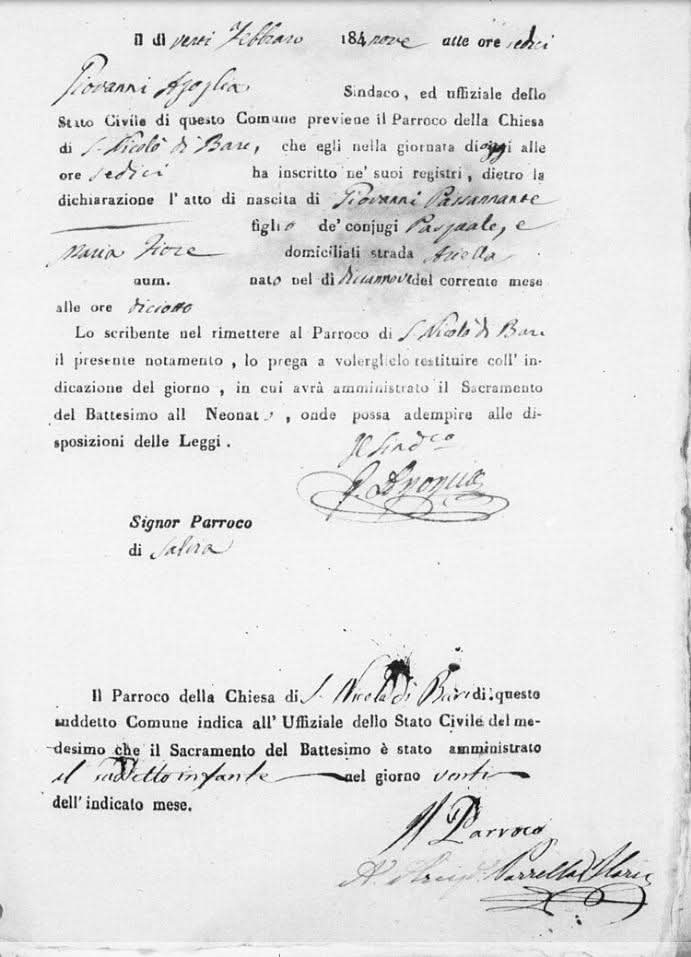 Il dì venti Febbraro 184 nove alle ore sedici
Giovanni
Sindaco, ed uffiziale dello
Stato Civile di questo Comune previene il Parroco della Chiesa
di S. Nicolò di Bari, che egli nella giornata di oggi alle
ore sedici ha inscritto ne' suoi registri, dietro la
dichiarazione l'atto di nascita di Giovanni Passannante
figlio de' conjugi Pasquale, e
Maria Fiore domiciliati strada Ariella
num. nato nel dì diciannove del corrente mese
alle ore diciotto
Lo scribente nel rimettere al Parroco di S. Nicolò di Bari
il presente notamento, lo prega a volerglielo restituire coll' in-
dicazione del giorno, in cui avrà amministrato il Sacramento
del Battesimo all Neonato, onde possa adempire alle di-
sposizioni delle Leggi.
Il Sindco
Signor Parroco
di Salvia
Il Parroco della Chiesa di S. Nicola di Bari di questo
suddetto Comune indica all' Uffiziale dello Stato Civile del me-
desimo che il Sacramento del Battesimo è stato amministrato
il suddetto infante nel giorno venti
dell' indicato mese.
Il Parroco
Parrella